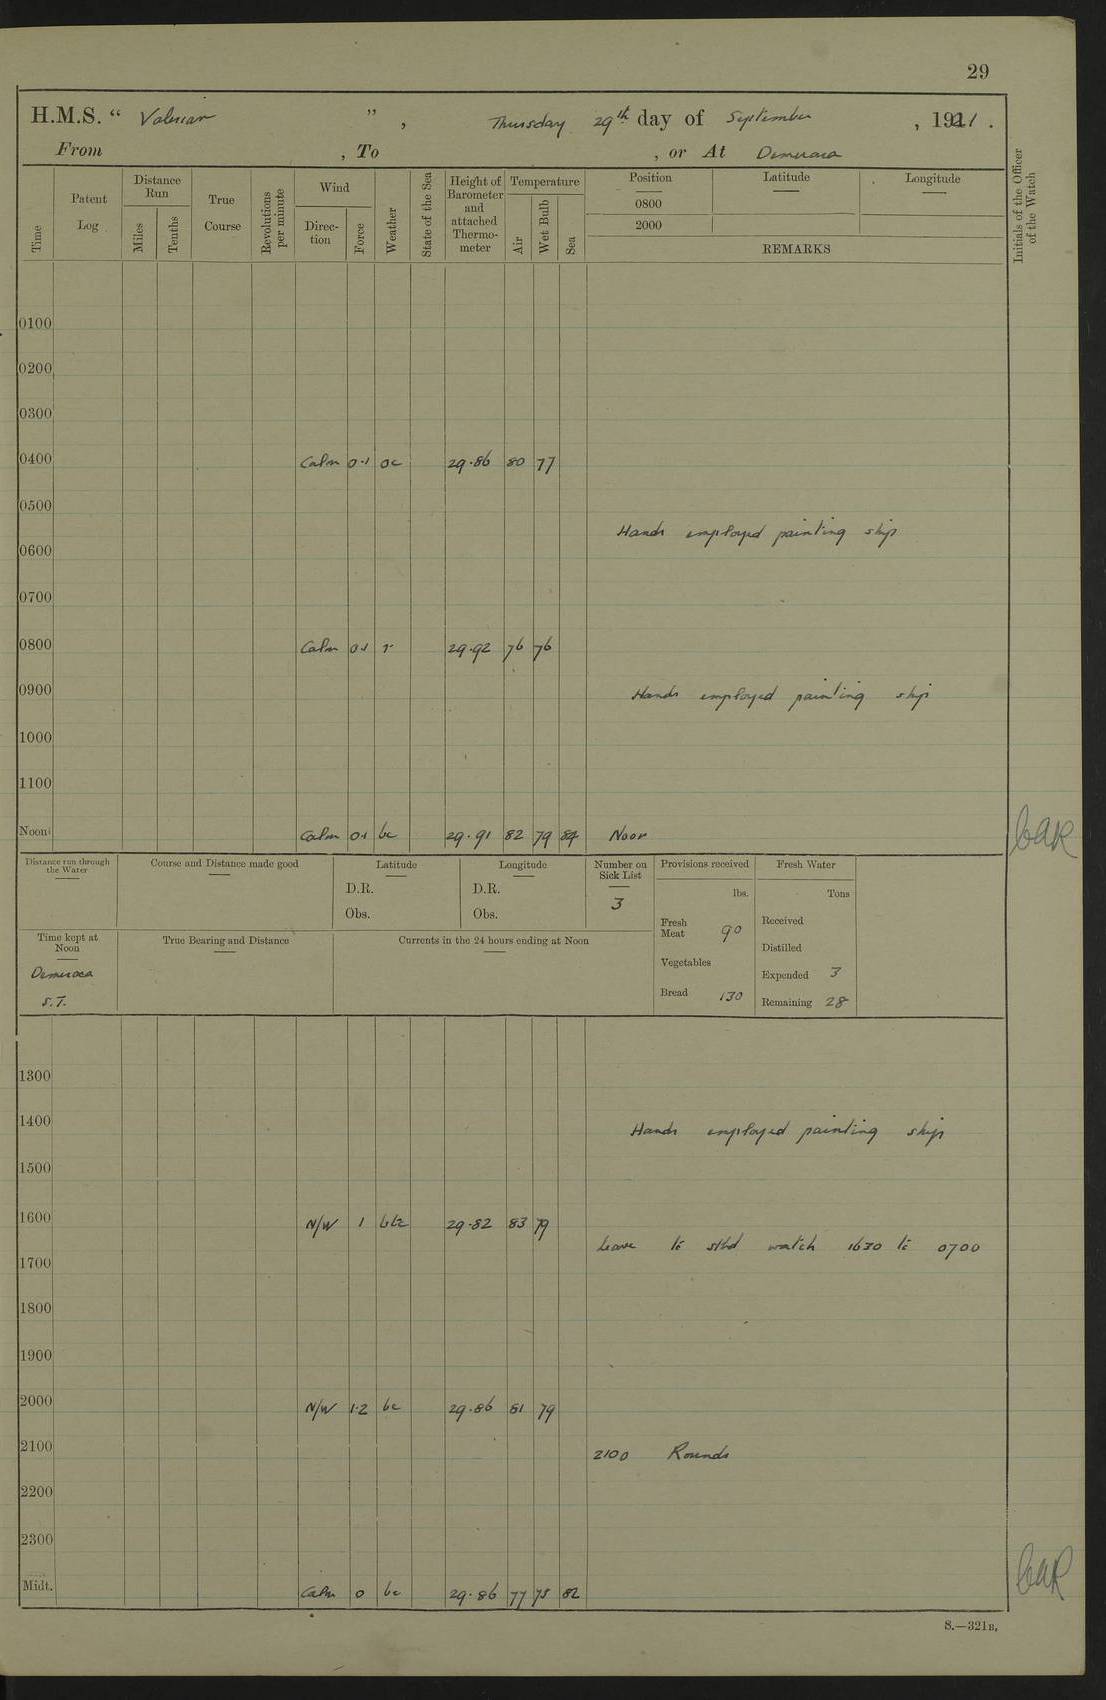 29
H.M.S. “ Valerian ”, Thursday 29th day of September, 1921.
From , To , or At Demerara
Time
Patent Log
Distance Run
Miles
Tenths
True Course
Revolutions per minute
Wind
Direction
Force
Weather
State of the Sea
Height of Barometer and attached Thermometer
Temperature
Air
Wet Bulb
Sea
Position
Latitude
Longitude
0800
2000
REMARKS
Initials of the Officer of the Watch
0100
0200
0300
0400 Calm 0.1 oc 29.86 80 77
0500
Hands employed painting ship
0600
0700
0800 Calm 0.1 r 29.92 76 76
0900 Hands employed painting ship
1000
1100
Noon Calm 0.1 bc 29.91 82 79 84 Noon
Distance run through the Water
Course and Distance made good
Latitude
D.R.
Obs.
Longitude
D.R.
Obs.
Number on Sick List
3
Provisions received
lbs.
Fresh Meat 90
Vegetables
Bread 130
Fresh Water
Tons
Received
Distilled
Expended 3
Remaining 28
Time kept at Noon
Demerara
S.T.
True Bearing and Distance
Currents in the 24 hours ending at Noon
1300
1400 Hands employed painting ship
1500
1600 N/W 1 29.82 83 79
Leave to stbd watch 1630 to 0700
1700
1800
1900
2000 N/W 1.2 bc 29.86 81 79
2100 2100 Rounds
2200
2300
Midt. Calm 0 bc 29.86 77 75 82
S.—321B.